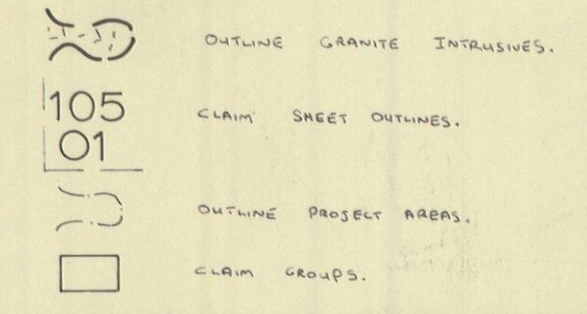 OUTLINE GRANITE INTRUSIVES.
105
01
CLAIM SHEET OUTLINES.
OUTLINE PROJECT AREAS.
CLAIM GROUPS.